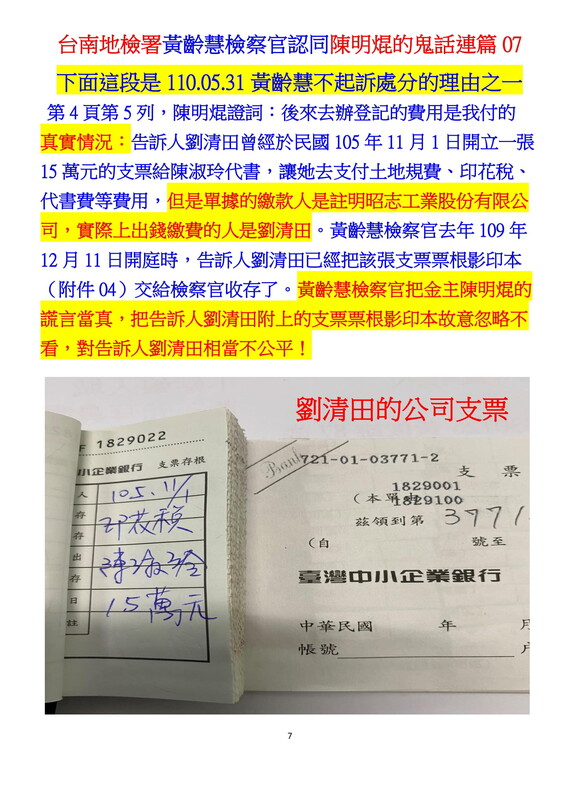 台南地檢署黃齡慧檢察官認同陳明焜的鬼話連篇 07
下面這段是 110.05.31 黃齡慧不起訴處分的理由之一
第 4 頁第 5 列，陳明焜證詞：後來去辦登記的費用是我付的
真實情況：告訴人劉清田曾經於民國 105 年 11 月 1 日開立一張
15 萬元的支票給陳淑玲代書，讓她去支付土地規費、印花稅、
代書費等費用，但是單據的繳款人是註明昭志工業股份有限公
司，實際上出錢繳費的人是劉清田。黃齡慧檢察官去年 109 年
12 月 11 日開庭時，告訴人劉清田已經把該張支票票根影印本
（附件 04）交給檢察官收存了。黃齡慧檢察官把金主陳明焜的
謊言當真，把告訴人劉清田附上的支票票根影印本故意忽略不
看，對告訴人劉清田相當不公平！
劉清田的公司支票
1829022
小企業銀行 支票存根
人 105.11/1
存 印花稅
存
出 陳淑玲
存
日 15萬元
註
Bank
721-01-03771-2
支票
1829001
（本單由
1829100
茲領到第 3771
（自 號至
臺灣中小企業銀行
中華民國 年 月
帳號
7